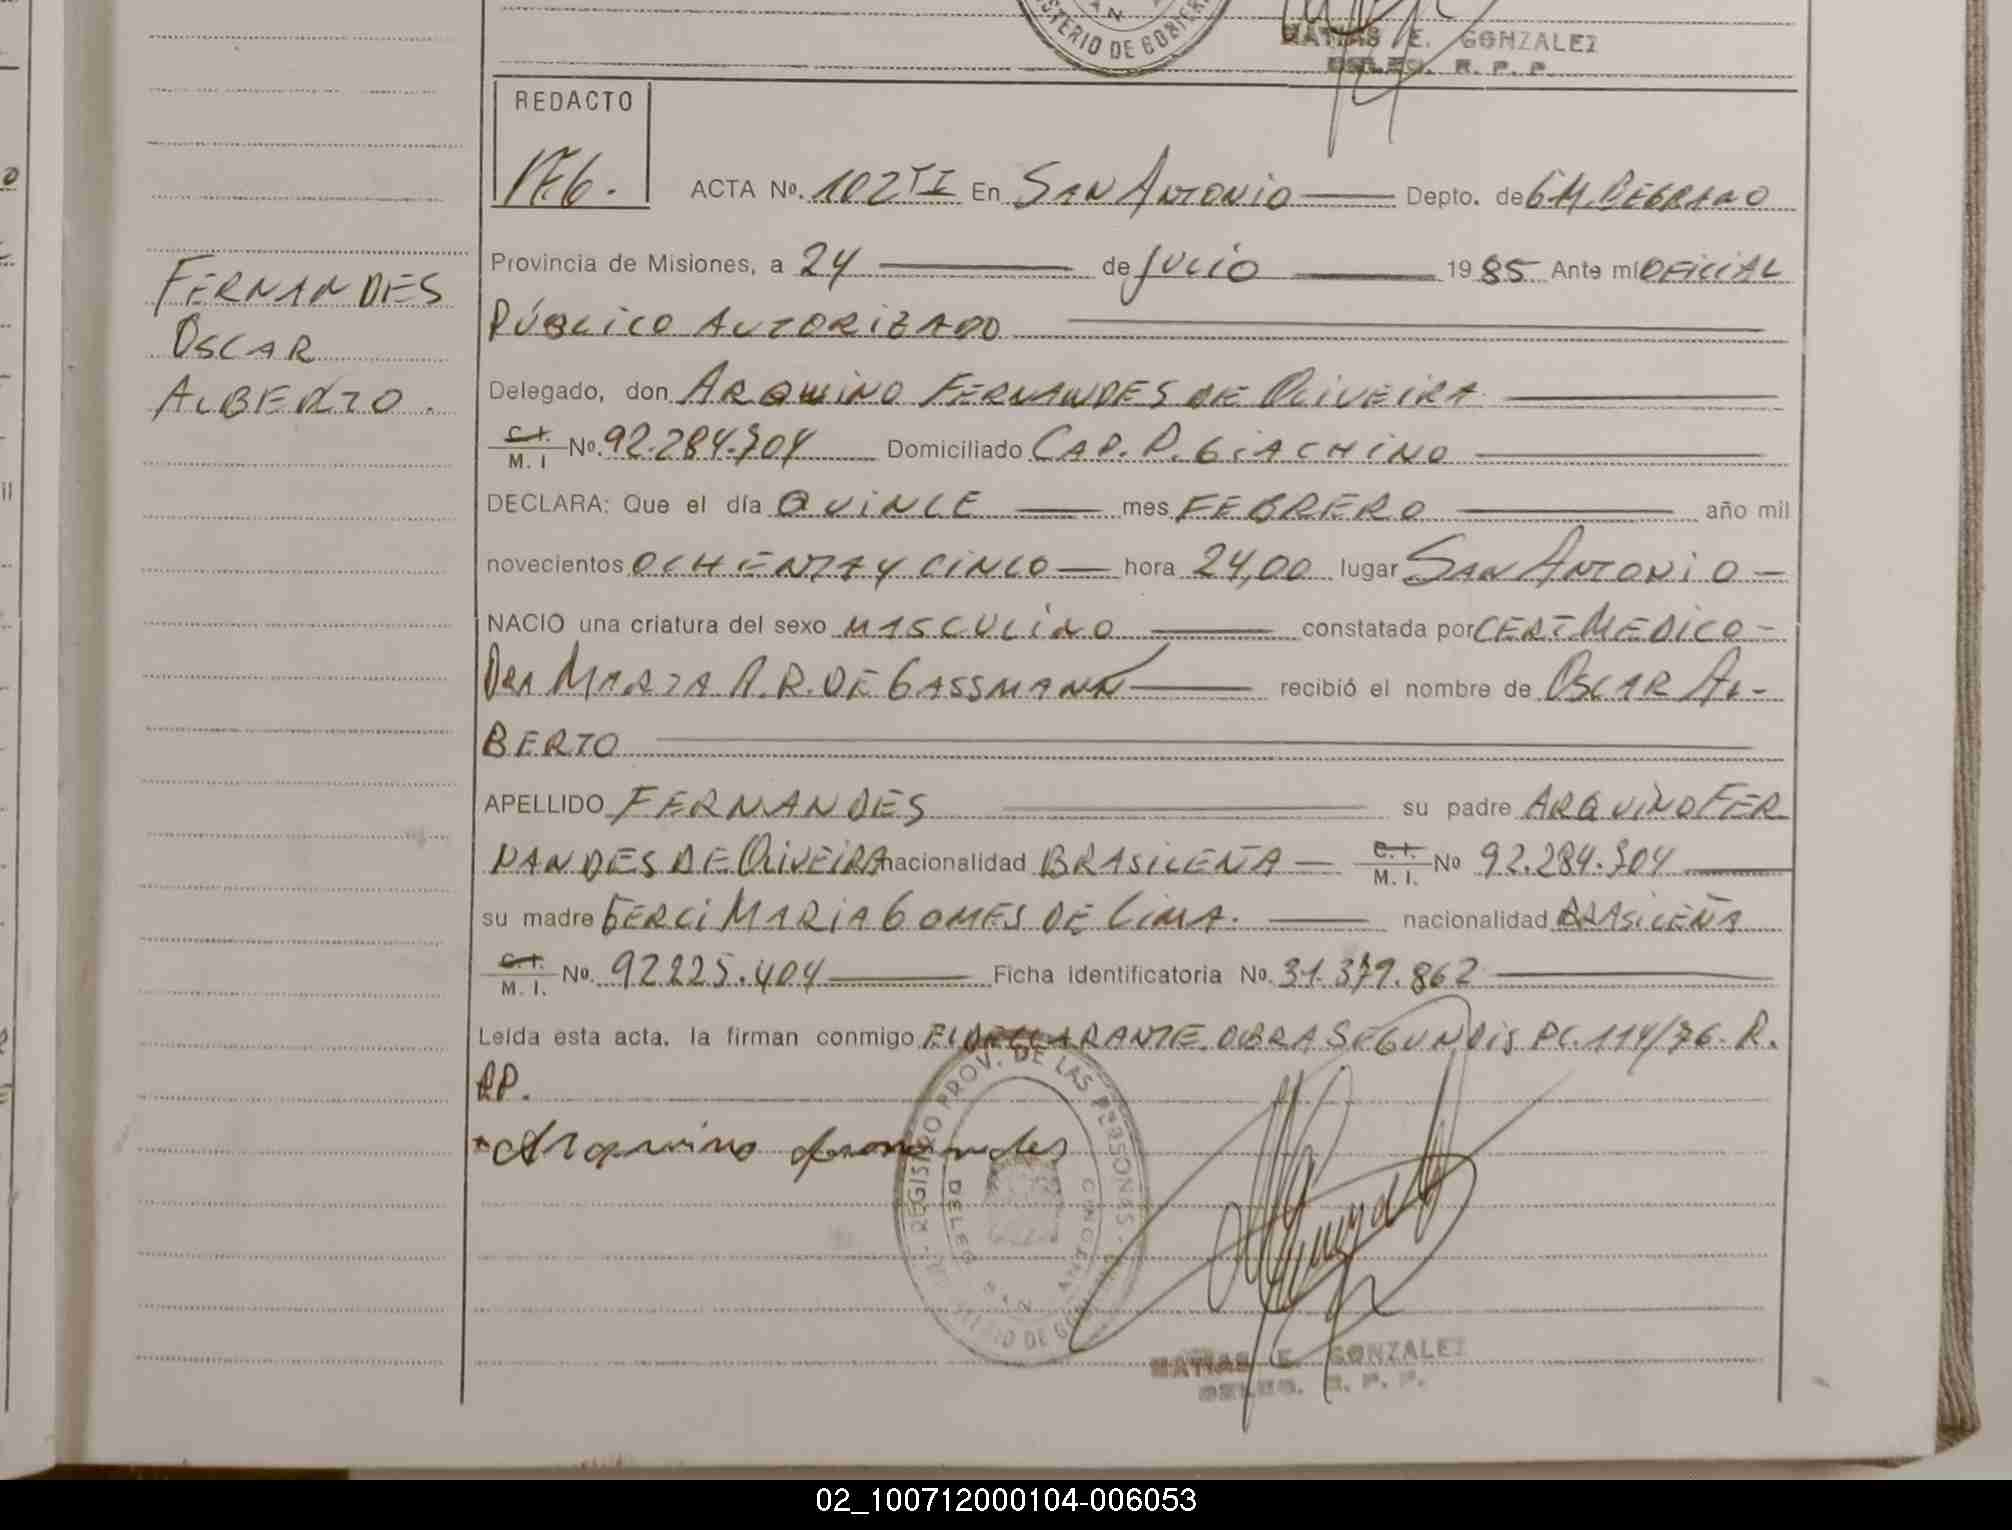 STERIO DE GOBIER
MATIAS E. GONZALEZ
DELEG. R. P. P.
REDACTO
ACTA Nº. 102 TI En SAN ANTONIO Depto. de GM. BEGRANO
Provincia de Misiones, a 24 de JULIO 1985 Ante mi OFICIAL
PÚBLICO AUTORIZADO
FERNANDES
OSCAR
ALBERTO.
Delegado, don ARQUINO FERNANDES DE OLIVEIRA
C. I. M. I Nº. 92.284.704 Domiciliado CAP. P. GIACHINO
DECLARA: Que el día QUINCE mes FEBRERO año mil
novecientos OCHENTA Y CINCO hora 24,00 lugar SAN ANTONIO
NACIO una criatura del sexo MASCULINO constatada por CERT MEDICO
DRA MARTA A.R. DE GASSMANN recibió el nombre de OSCAR AL-
BERTO
APELLIDO FERNANDES su padre ARQUINO FER
NANDES DE OLIVEIRA nacionalidad BRASILEÑA C. I. M. I. Nº 92.284.704
su madre GERCI MARIA GOMES DE LIMA. nacionalidad BRASILEÑA
C. I. M. I. Nº. 92225.404 Ficha identificatoria Nº. 31.379.862
Leída esta acta, la firman conmigo El DECLARANTE. OBRA SEGUN DIS PC. 114/76. R.
RP.
Arquino fernandes
REGISTRO PROV. DE LAS PERSONAS
DELEG. SAN
MATIAS E. GONZALEZ
DELEG. R. P. P.
02_100712000104-006053